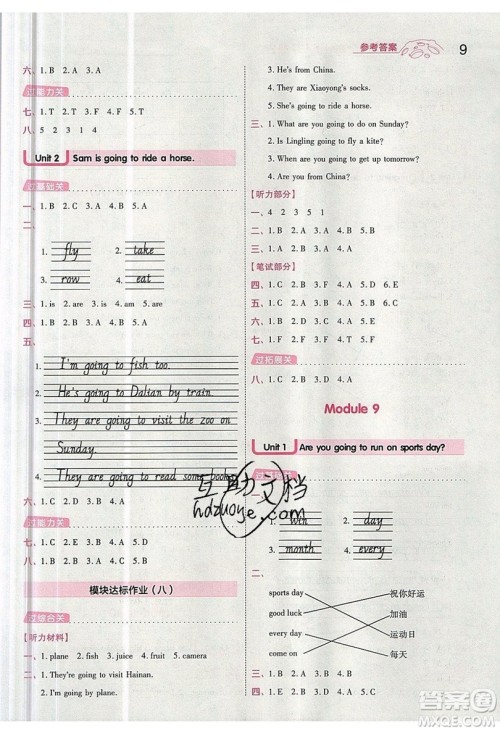 参考答案 9
六、1. B 2. A 3. A
过能力关
七、1. T 2. T 3. F 4. F 5. T
八、5 2 3 1 4
Unit 2 Sam is going to ride a horse.
过基础关
一、1. B 2. B 3. B 4. B 5. A
二、
1. fly 2. take
3. row 4. eat
三、1. is 2. are 3. is 4. am 5. is
四、1. B 2. B 3. A 4. A 5. A
五、
1. I'm going to fish too.
2. He's going to Dalian by train.
3. They are going to visit the zoo on
Sunday.
4. They are going to read some books.
六、1. C 2. A 3. D 4. B
过能力关
七、1. C 2. A 3. D 4. B
模块达标作业（八）
过综合关
【听力材料】
一、1. plane 2. fish 3. juice 4. fruit 5. camera
二、1. They're going to visit Hainan.
2. I'm going by plane.
3. He's from China.
4. They are Xiaoyong's socks.
5. She's going to travel.
三、1. What are you going to do on Sunday?
2. Is Lingling going to fly a kite?
3. Are you going to get up tomorrow?
4. Are you from China?
【听力部分】
一、4 2 3 5 1
二、1. B 2. A 3. B 4. A 5. B
三、1. A 2. B 3. B 4. A
【笔试部分】
四、1. C 2. B 3. A 4. A 5. D 6. E
五、1. B 2. C 3. B 4. A 5. A
六、1. C 2. D 3. F 4. A 5. B 6. E
七、1. F 2. F 3. T 4. F 5. T
过拓展关
八、1. A 2. C 3. B 4. D
Module 9
Unit 1 Are you going to run on sports day?
一、
1. win 2. day
3. month 4. every
二、
sports day 祝你好运
good luck 加油
every day 运动日
come on 每天
三、1. B 2. A 3. B 4. A
四、1. C 2. A 3. D 4. E 5. B
互助文档
hdzuoye.com
答案圈
MXQE.COM